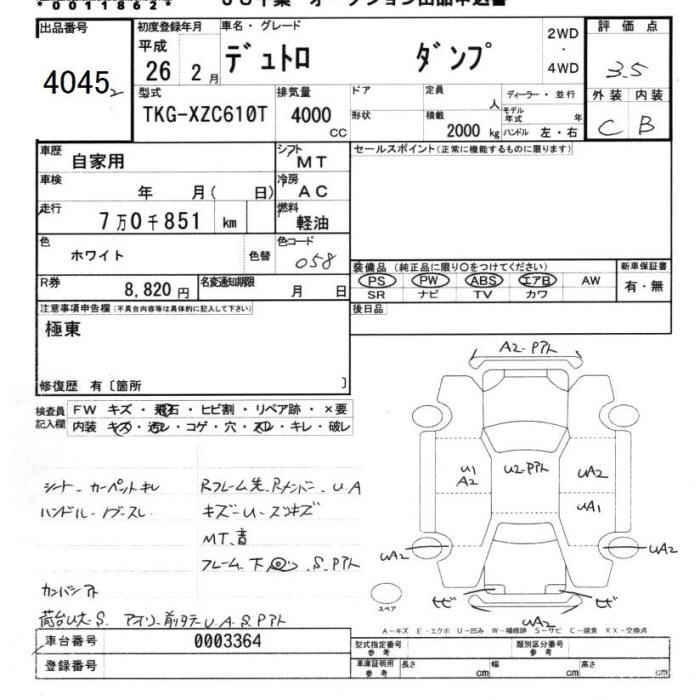 *00118862*
出品番号
4045
2
初度登録年月
平成
26 2 月
車名・グレード
デュトロ ダンプ
2WD
・
4WD
評価点
3.5
外装 内装
C B
型式
TKG-XZC610T
排気量
4000
CC
ドア
形状
定員
人
積載
2000 kg
ディーラー・並行
モデル年式 年
ハンドル 左・右
車歴
自家用
シフト
MT
セールスポイント(正常に機能するものに限ります)
車検
年 月( 日)
冷房
AC
走行
7万0千851 km
燃料
軽油
色
ホワイト
色替
色コード
058
R券
8,820 円
名変通知期限
月 日
装備品 (純正品に限り○をつけてください)
PS PW ABS エアB AW
SR ナビ TV カワ
新車保証書
有・無
後日品
注意事項申告欄(不具合内容等は具体的に記入して下さい)
極東
修復歴 有〔箇所 〕
検査員記入欄
FW キズ・飛石・ヒビ割・リペア跡・×要
内装 キズ・汚レ・コゲ・穴・スレ・キレ・破レ
A2-Pアト
U1
A2
U2-Pアト
UA2
UA1
UA2
UA2
ヒビ
ヒビ
UA2
スペア
シート-カーペットキレ
ハンドル-ノブ-スレ
Rフレーム先.Rメンバー.U.A
キズ-U-スリキズ
MT.音
フレーム.下
.S.Pアト
カンバンアト
荷台U大-S. アオリ-前タテU.A.S.Pアト
A-キズ E-エクボ U-凹み W-補修跡 S-サビ C-腐食 XX-交換済
車台番号
0003364
登録番号
型式指定番号
参考
類別区分番号
参考
車庫証明用
参考
長さ cm
幅 cm
高さ cm